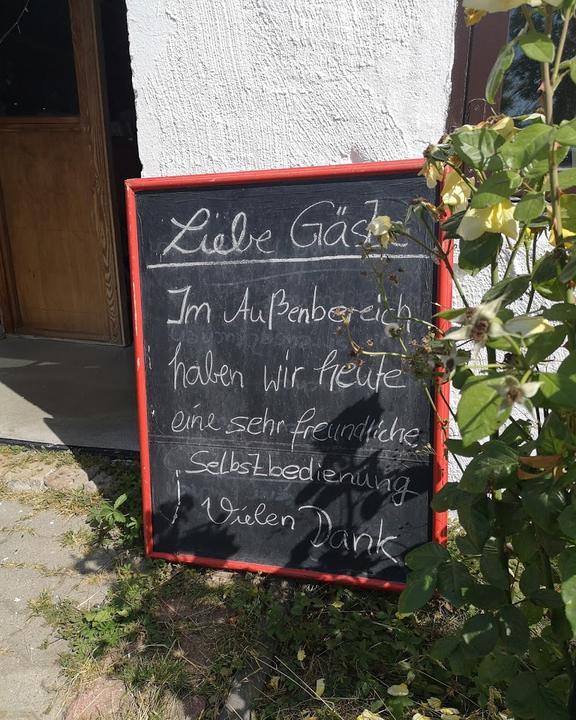 Liebe Gäste
Im Außenbereich
haben wir heute
eine sehr freundliche
Selbstbedienung
! Vielen Dank